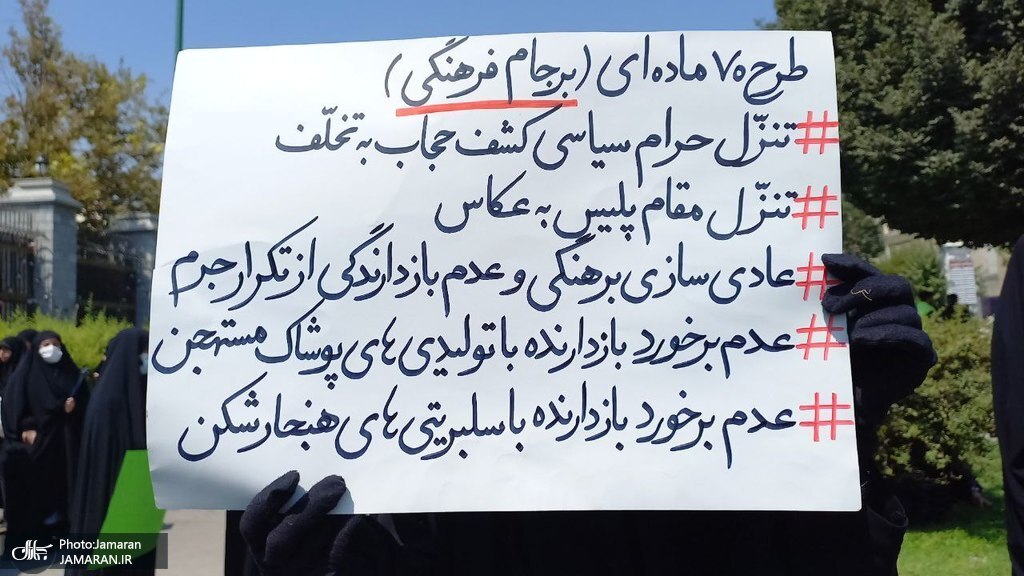 طرح ۷۰ ماده‌ای (برجام فرهنگی)
#تنزّل حرام سیاسی کشف حجاب به تخلّف
#تنزّل مقام پلیس به عکاس
#عادی سازی برهنگی و عدم بازدارندگی از تکرار جرم
#عدم برخورد بازدارنده با تولیدی های پوشاک مستهجن
#عدم برخورد بازدارنده با سلبریتی های هنجارشکن
جماران
Photo:Jamaran
JAMARAN.IR